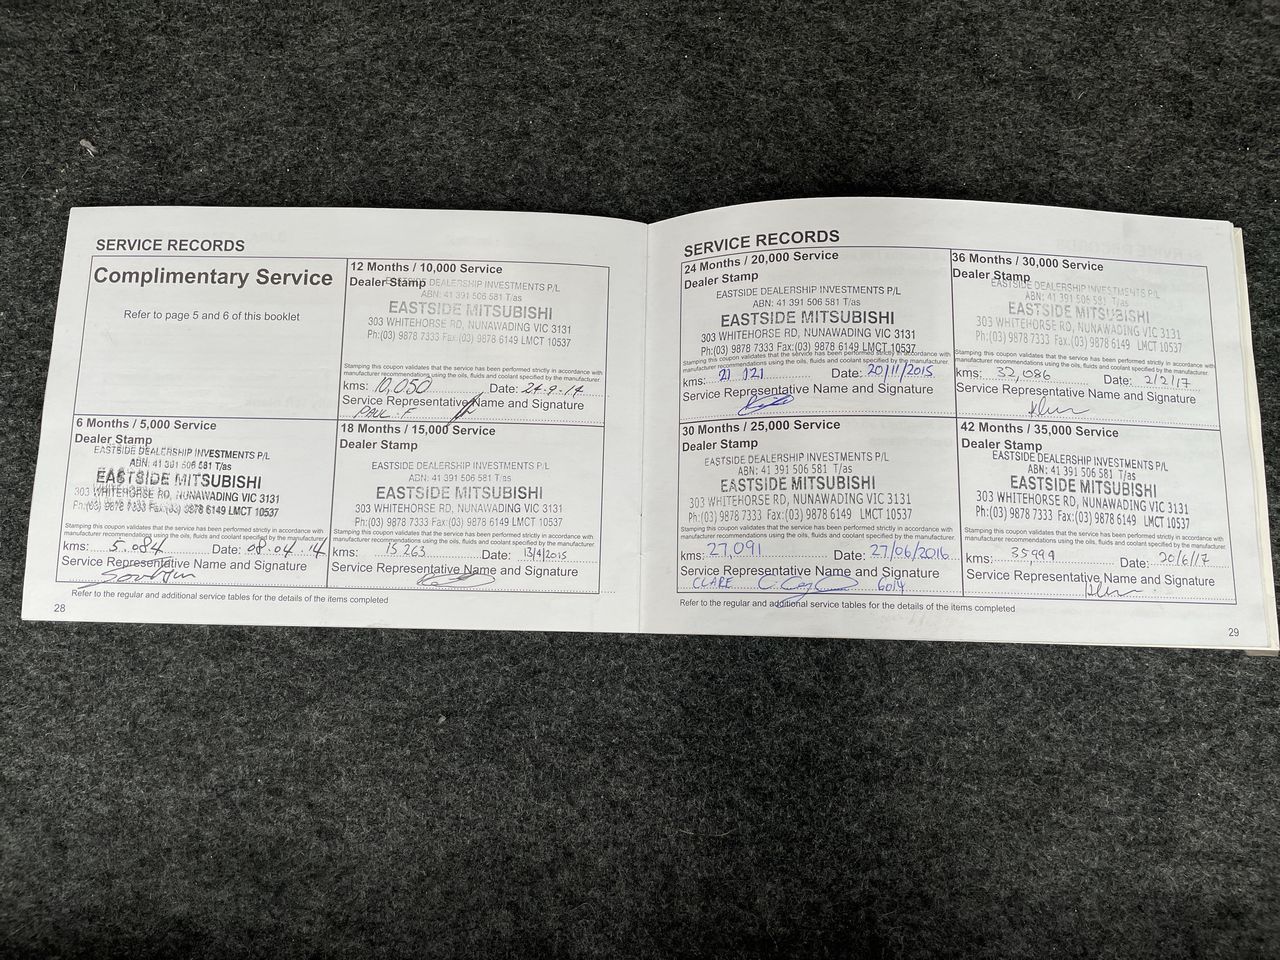 SERVICE RECORDS
Complimentary Service
Refer to page 5 and 6 of this booklet
12 Months / 10,000 Service
Dealer Stamp
EASTSIDE DEALERSHIP INVESTMENTS P/L
ABN: 41 391 506 581 T/as
EASTSIDE MITSUBISHI
303 WHITEHORSE RD, NUNAWADING VIC 3131
Ph:(03) 9878 7333 Fax:(03) 9878 6149 LMCT 10537
Stamping this coupon validates that the service has been performed strictly in accordance with
manufacturer recommendations using the oils, fluids and coolant specified by the manufacturer.
kms: 10,050 Date: 24.9.14
Service Representative Name and Signature
PAUL.F
6 Months / 5,000 Service
Dealer Stamp
EASTSIDE DEALERSHIP INVESTMENTS P/L
ABN: 41 391 506 581 T/as
EASTSIDE MITSUBISHI
303 WHITEHORSE RD, NUNAWADING VIC 3131
Ph:(03) 9878 7333 Fax:(03) 9878 6149 LMCT 10537
Stamping this coupon validates that the service has been performed strictly in accordance with
manufacturer recommendations using the oils, fluids and coolant specified by the manufacturer.
kms: 5.084 Date: 08.04.14
Service Representative Name and Signature
18 Months / 15,000 Service
Dealer Stamp
EASTSIDE DEALERSHIP INVESTMENTS P/L
ABN: 41 391 506 581 T/as
EASTSIDE MITSUBISHI
303 WHITEHORSE RD, NUNAWADING VIC 3131
Ph:(03) 9878 7333 Fax:(03) 9878 6149 LMCT 10537
Stamping this coupon validates that the service has been performed strictly in accordance with
manufacturer recommendations using the oils, fluids and coolant specified by the manufacturer.
kms: 15 263 Date: 13/4/2015
Service Representative Name and Signature
Refer to the regular and additional service tables for the details of the items completed
28
SERVICE RECORDS
24 Months / 20,000 Service
Dealer Stamp
EASTSIDE DEALERSHIP INVESTMENTS P/L
ABN: 41 391 506 581 T/as
EASTSIDE MITSUBISHI
303 WHITEHORSE RD, NUNAWADING VIC 3131
Ph:(03) 9878 7333 Fax:(03) 9878 6149 LMCT 10537
Stamping this coupon validates that the service has been performed strictly in accordance with
manufacturer recommendations using the oils, fluids and coolant specified by the manufacturer.
kms: 21 121 Date: 20/11/2015
Service Representative Name and Signature
36 Months / 30,000 Service
Dealer Stamp
EASTSIDE DEALERSHIP INVESTMENTS P/L
ABN: 41 391 506 581 T/as
EASTSIDE MITSUBISHI
303 WHITEHORSE RD, NUNAWADING VIC 3131
Ph:(03) 9878 7333 Fax:(03) 9878 6149 LMCT 10537
Stamping this coupon validates that the service has been performed strictly in accordance with
manufacturer recommendations using the oils, fluids and coolant specified by the manufacturer.
kms: 32,086 Date: 2/2/17
Service Representative Name and Signature
30 Months / 25,000 Service
Dealer Stamp
EASTSIDE DEALERSHIP INVESTMENTS P/L
ABN: 41 391 506 581 T/as
EASTSIDE MITSUBISHI
303 WHITEHORSE RD, NUNAWADING VIC 3131
Ph:(03) 9878 7333 Fax:(03) 9878 6149 LMCT 10537
Stamping this coupon validates that the service has been performed strictly in accordance with
manufacturer recommendations using the oils, fluids and coolant specified by the manufacturer.
kms: 27,091 Date: 27/06/2016
Service Representative Name and Signature
CLARE 6014
42 Months / 35,000 Service
Dealer Stamp
EASTSIDE DEALERSHIP INVESTMENTS P/L
ABN: 41 391 506 581 T/as
EASTSIDE MITSUBISHI
303 WHITEHORSE RD, NUNAWADING VIC 3131
Ph:(03) 9878 7333 Fax:(03) 9878 6149 LMCT 10537
Stamping this coupon validates that the service has been performed strictly in accordance with
manufacturer recommendations using the oils, fluids and coolant specified by the manufacturer.
kms: 35,999 Date: 20/6/17
Service Representative Name and Signature
Refer to the regular and additional service tables for the details of the items completed
29